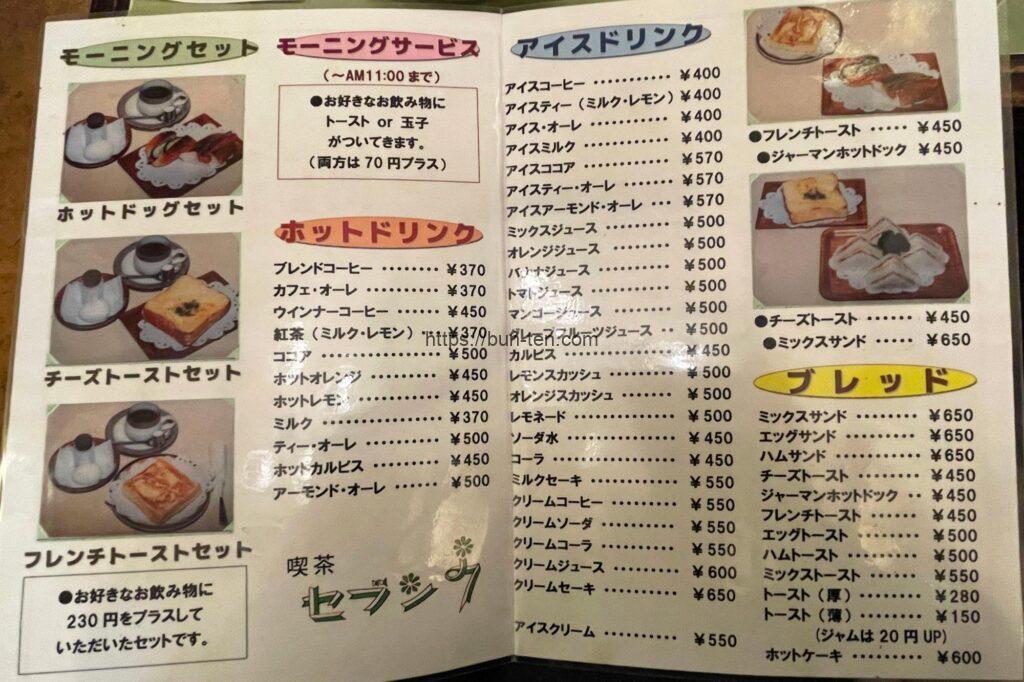 モーニングセット
ホットドッグセット
チーズトーストセット
フレンチトーストセット
●お好きなお飲み物に
230円をプラスして
いただいたセットです。
モーニングサービス
(～AM11:00まで)
●お好きなお飲み物に
トースト or 玉子
がついてきます。
(両方は70円プラス)
ホットドリンク
ブレンドコーヒー ········ ¥370
カフェ・オーレ ········ ¥370
ウインナーコーヒー ······ ¥450
紅茶(ミルク・レモン) ·· ¥370
ココア ············ ¥500
ホットオレンジ ········ ¥450
ホットレモン ········· ¥450
ミルク ············ ¥370
ティー・オーレ ········ ¥500
ホットカルピス ········ ¥450
アーモンド・オーレ ······ ¥500
喫茶
セブンワ
https://bun-ten.com
アイスドリンク
アイスコーヒー ·········· ¥400
アイスティー(ミルク・レモン) ¥400
アイス・オーレ ·········· ¥400
アイスミルク ··········· ¥400
アイスココア ··········· ¥570
アイスティー・オーレ ······· ¥570
アイスアーモンド・オーレ ····· ¥570
ミックスジュース ········· ¥500
オレンジジュース ········· ¥500
バナナジュース ·········· ¥500
トマトジュース ·········· ¥500
マンゴージュース ········· ¥500
グレープフルーツジュース ·· ¥500
カルピス ············· ¥450
レモンスカッシュ ········· ¥500
オレンジスカッシュ ········ ¥500
レモネード ············ ¥500
ソーダ水 ············· ¥450
コーラ ·············· ¥450
ミルクセーキ ··········· ¥550
クリームコーヒー ········· ¥550
クリームソーダ ·········· ¥550
クリームコーラ ·········· ¥550
クリームジュース ········· ¥600
クリームセーキ ·········· ¥650
アイスクリーム ·········· ¥550
●フレンチトースト ····· ¥450
●ジャーマンホットドック ¥450
●チーズトースト ······ ¥450
●ミックスサンド ······ ¥650
ブレッド
ミックスサンド ········ ¥650
エッグサンド ········· ¥650
ハムサンド ·········· ¥650
チーズトースト ········ ¥450
ジャーマンホットドック ·· ¥450
フレンチトースト ······· ¥450
エッグトースト ········ ¥500
ハムトースト ········· ¥500
ミックストースト ······· ¥550
トースト(厚) ········ ¥280
トースト(薄) ········ ¥150
(ジャムは20円UP)
ホットケーキ ········· ¥600